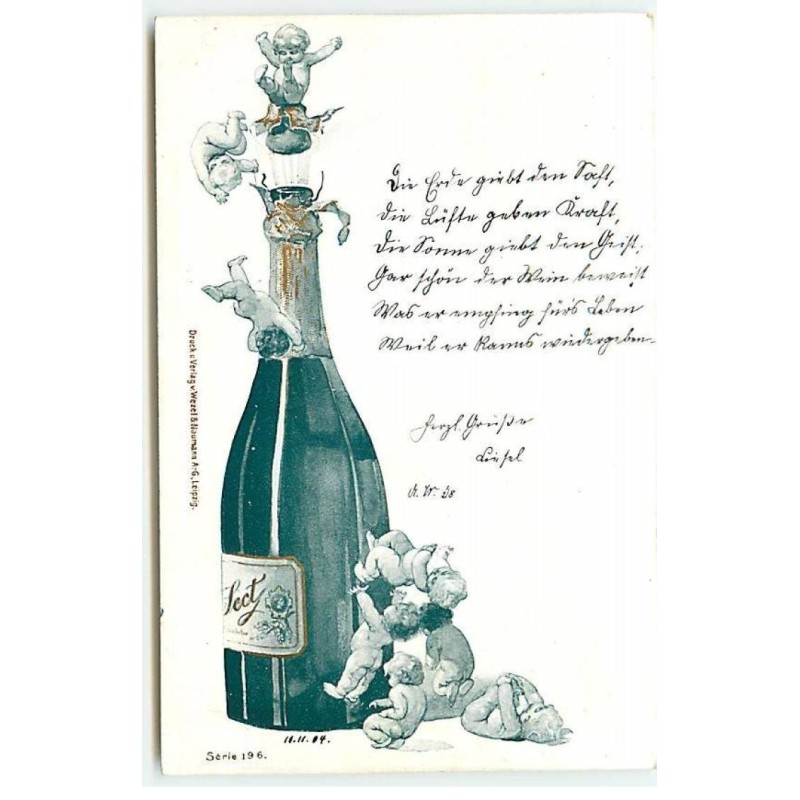 Die Erde giebt den Saft,
die Lüfte geben Kraft,
Die Sonne giebt den Geist.
Gar schön der Wein beweist
Was er empfing fürs Leben
Weil er kanns wiedergeben.
Herzl. Grüße
Liesel
Druck u. Verlag v. Wezel & Naumann A-G, Leipzig.
Sect
11.11.04.
Serie 196.